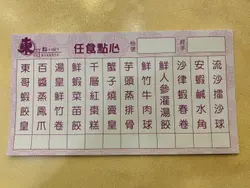 東
任食點心
枱號
東哥蝦餃皇
百醬蒸鳳爪
湯皇鮮竹卷
鮮蝦菜苗餃
千層紅棗糕
蟹子燒賣皇
芋頭蒸排骨
鮮竹牛肉球
鮮人參灌湯餃
沙律蝦春卷
安蝦鹹水角
流沙擂沙球